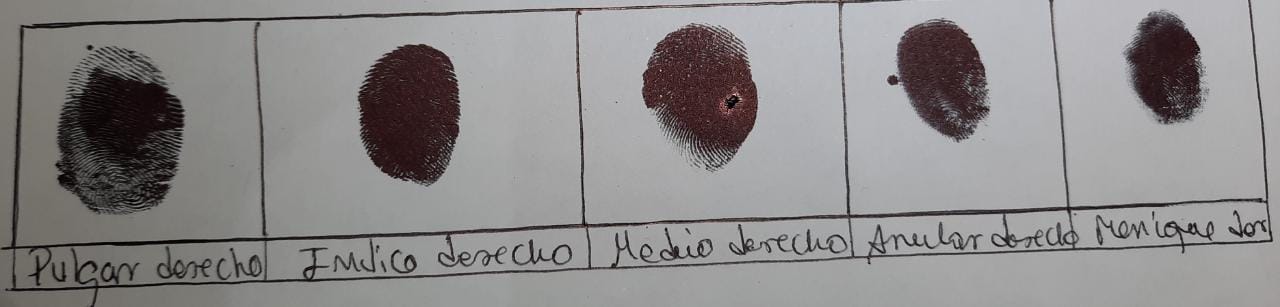 Pulgar derecho
Indico derecho
Medio derecho
Anular derecho
Menique der